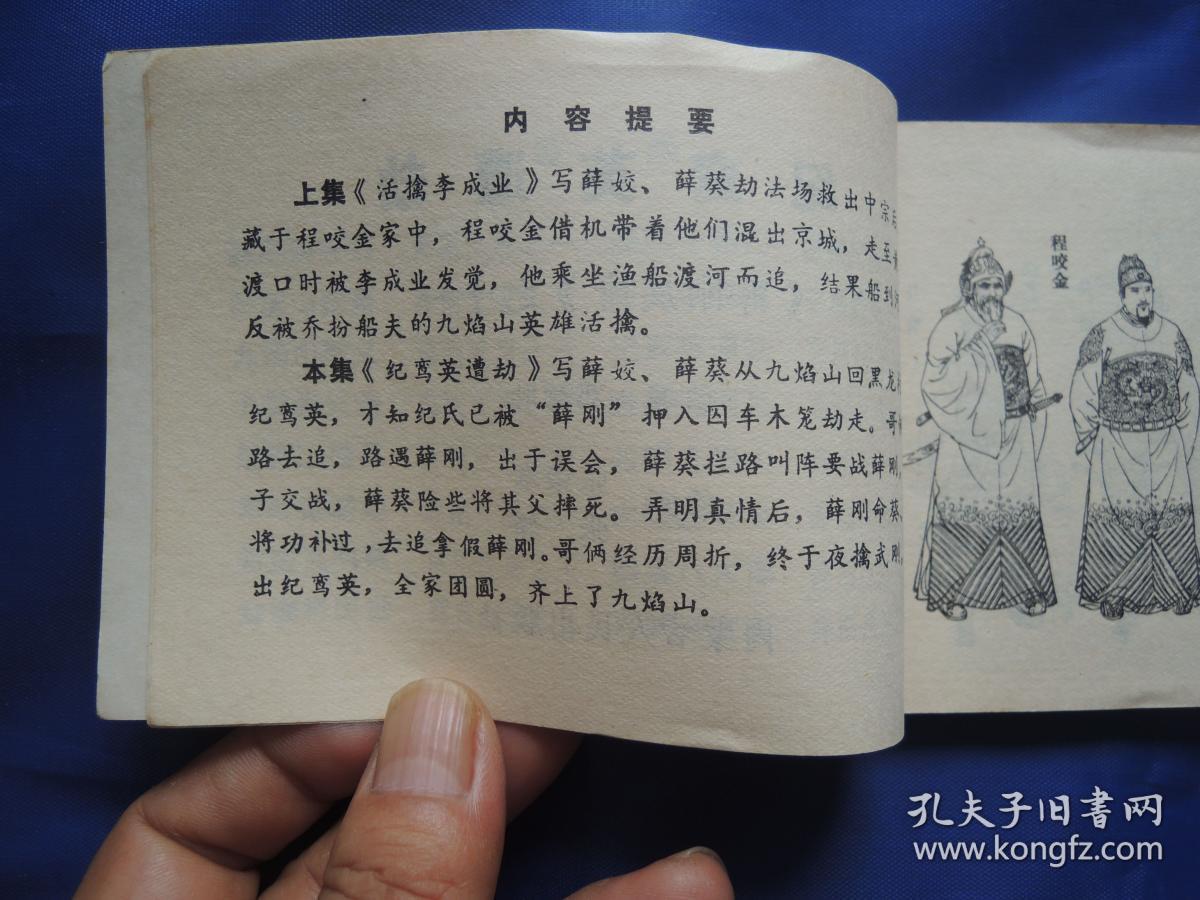 内容提要
上集《活擒李成业》写薛姣、薛葵劫法场救出中宗后
藏于程咬金家中，程咬金借机带着他们混出京城，走至
渡口时被李成业发觉，他乘坐渔船渡河而追，结果船到河
反被乔扮船夫的九焰山英雄活擒。
本集《纪鸾英遭劫》写薛姣、薛葵从九焰山回黑龙
纪鸾英，才知纪氏已被“薛刚”押入囚车木笼劫走。哥
路去追，路遇薛刚，出于误会，薛葵拦路叫阵要战薛刚，
子交战，薛葵险些将其父摔死。弄明真情后，薛刚命葵、
将功补过，去追拿假薛刚。哥俩经历周折，终于夜擒武刚，
出纪鸾英，全家团圆，齐上了九焰山。
程咬金
孔夫子旧书网
www.kongfz.com